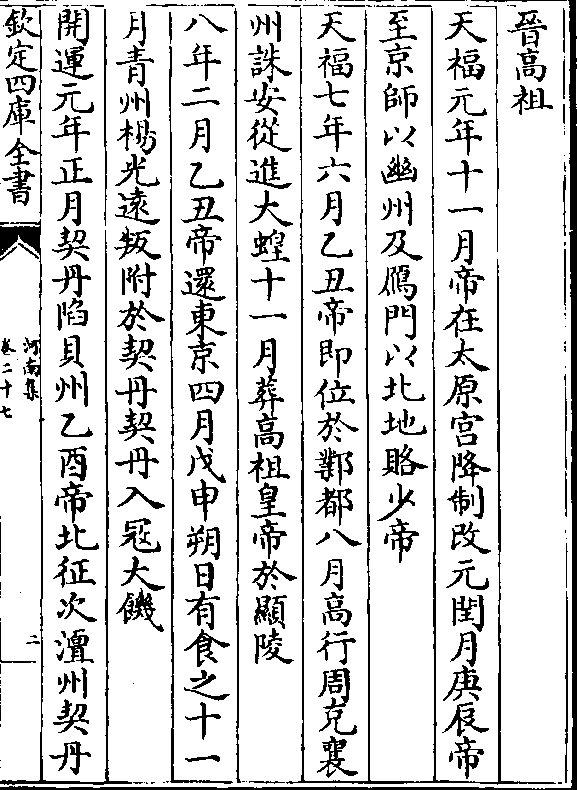 晉高祖
天福元年十一月帝在太原宫降制改元閏月庚辰帝
至京師以幽州及鴈門以北地賂少帝
天福七年六月乙丑帝即位於鄴都八月高行周克襄
州誅安從進大蝗十一月葬高祖皇帝於顯陵
八年二月乙丑帝還東京四月戊申朔日有食之十一
月青州楊光遠叛附於契丹契丹入冦大饑
開運元年正月契丹陷貝州乙酉帝北征次澶州契丹
欽定四庫全書
河南集
卷二十七
二